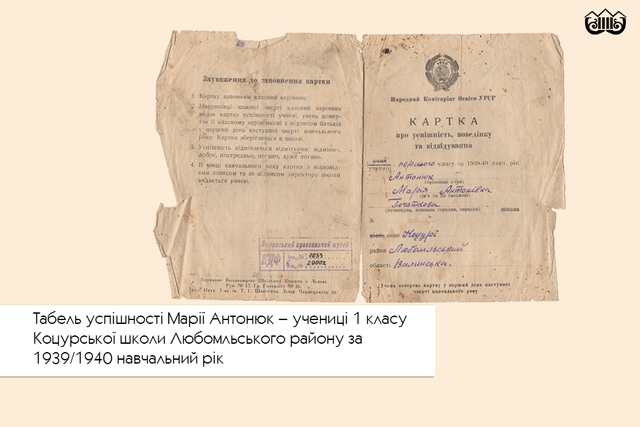 Зауваження до заповнення картки
1. Картку заповнює класний керівник.
2. Наприкінці кожної чверті класний керівник
видає картку успішності учневі, учень повер-
тає її класному керівникові з підписом батьків
у перший день наступної чверті навчального
року. Картка зберігається в школі.
3. Успішність відмічається відмітками: відмінно,
добре, посередньо, погано, дуже погано.
4. В кінці навчального року картка з відповід-
ним записом та за підписом директора школи
видається учневі.
Волинський краєзнавчий музей
КДФ
20002
Державне Видавництво
Народний Комісаріат Освіти УРСР
КАРТКА
про успішність, поведінку
та відвідування
учня
учениці першого класу за 1939-40 навч. рік
Антонюк
Марія Антонівна
Початкова
школа
№
місто, село Коцурі
район Любомльський
область Волинська.
Учень повертає картку у перший день наступної
чверті навчального року
Табель успішності Марії Антонюк – учениці 1 класу
Коцурської школи Любомльського району за
1939/1940 навчальний рік